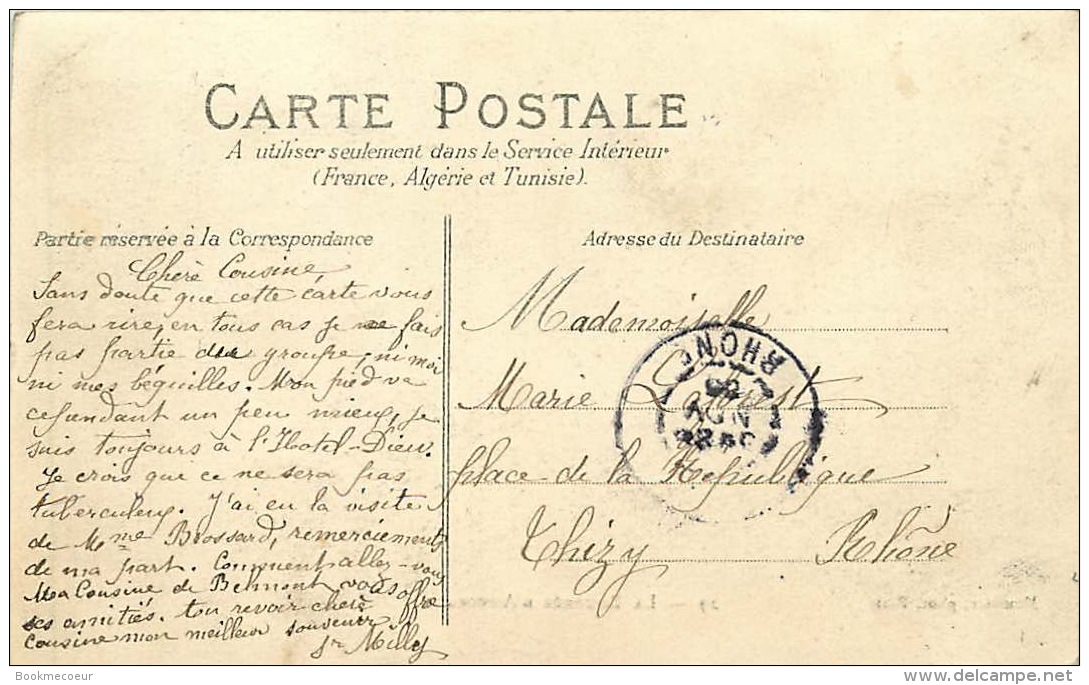 CARTE POSTALE
A utiliser seulement dans le Service Intérieur
(France, Algérie et Tunisie).
Partie réservée à la Correspondance
Chère Cousine
Sans doute que cette carte vous
fera rire, en tous cas je ne fais
pas partie du groupe, ni moi
ni mes béquilles. Mon pied va
cependant un peu mieux, je
suis toujours à l'Hotel-Dieu.
Je crois que ce ne sera pas
tuberculeux. J'ai eu la visite
de Mme Brossard, remerciements
de ma part. Comment allez-vous
Ma Cousine de Belmont vous offre
ses amitiés. au revoir chère
Cousine mon meilleur souvenir
Milly
Adresse du Destinataire
Mademoiselle
Marie
place de la République
Thizy Rhône
RHONE
NOV
Bookmecoeur
delcampe.net